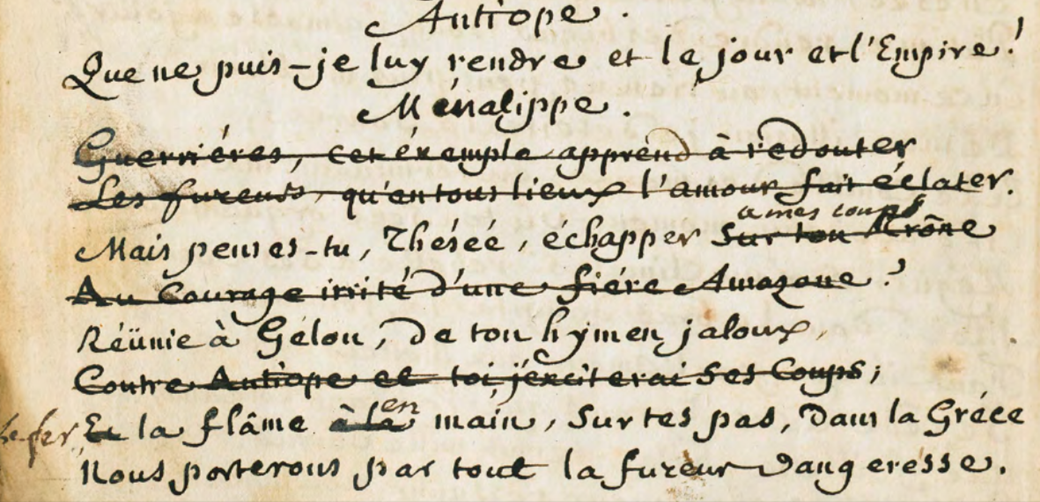 Antiope.
Que ne puis-je luy rendre et le jour et l'Empire!
Ménalippe.
Guerriéres, cet éxemple apprend à rèdouter
Les fureurs, qu'en tous lieux l'amour fait éclater.
a mes coups
Mais penses-tu, Théséé, échapper sur ton thrône
Au Courage irrité d'une fiére Amazone?
Réünie à Gélon, de ton hymen jaloux,
Contre Antiope et toi, j'éxciterai ses Coups;
en
le fer Et la flâme à la main, sur tes pas, dans la Gréce
Nous porterons par tout la fureur vangeresse.